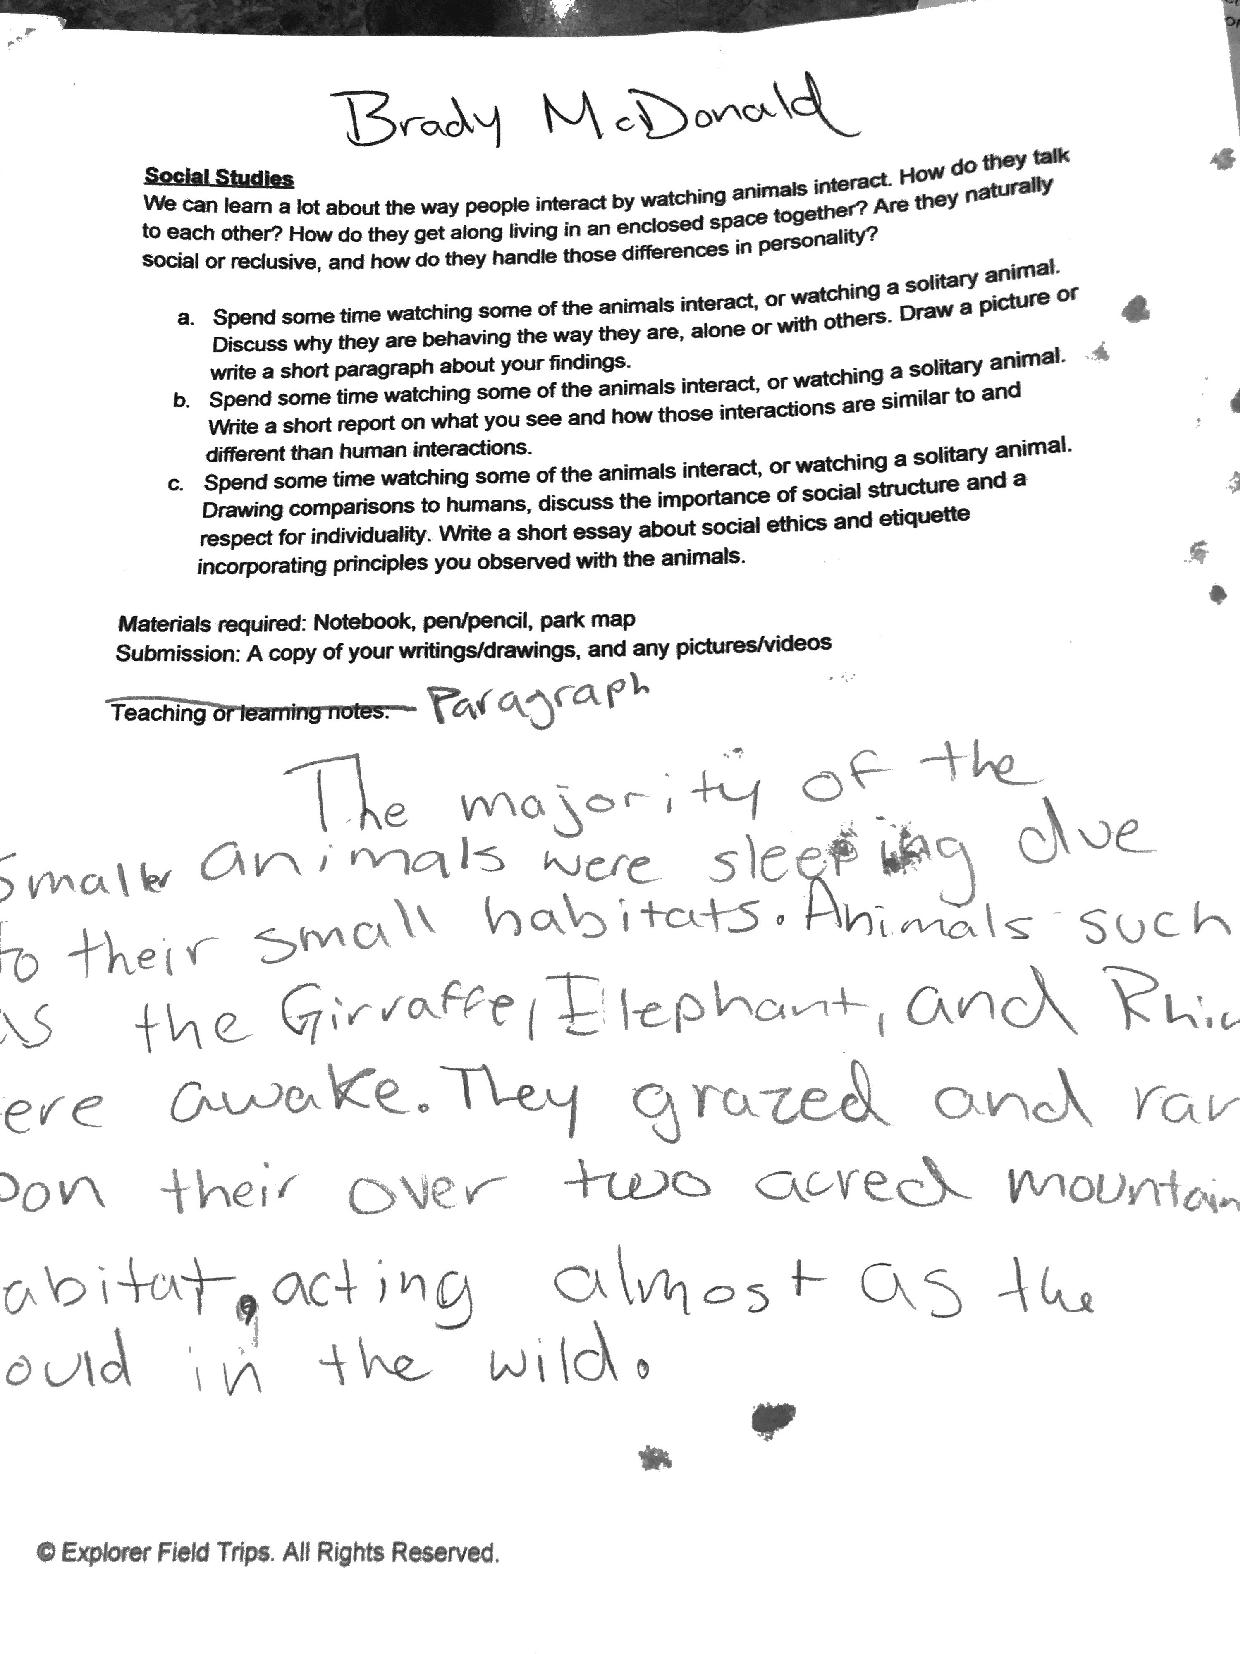 Brady McDonald
Social Studies
We can learn a lot about the way people interact by watching animals interact. How do they talk
to each other? How do they get along living in an enclosed space together? Are they naturally
social or reclusive, and how do they handle those differences in personality?
a. Spend some time watching some of the animals interact, or watching a solitary animal.
Discuss why they are behaving the way they are, alone or with others. Draw a picture or
write a short paragraph about your findings.
b. Spend some time watching some of the animals interact, or watching a solitary animal.
Write a short report on what you see and how those interactions are similar to and
different than human interactions.
c. Spend some time watching some of the animals interact, or watching a solitary animal.
Drawing comparisons to humans, discuss the importance of social structure and a
respect for individuality. Write a short essay about social ethics and etiquette
incorporating principles you observed with the animals.
Materials required: Notebook, pen/pencil, park map
Submission: A copy of your writings/drawings, and any pictures/videos
Teaching or learning notes: Paragraph
The majority of the
smaller animals were sleeping due
to their small habitats. Animals such
as the Girraffe, Elephant, and Rhin
ere awake. They grazed and ran
pon their over two acred mountain
abitat, acting almost as the
ould in the wild.
© Explorer Field Trips. All Rights Reserved.